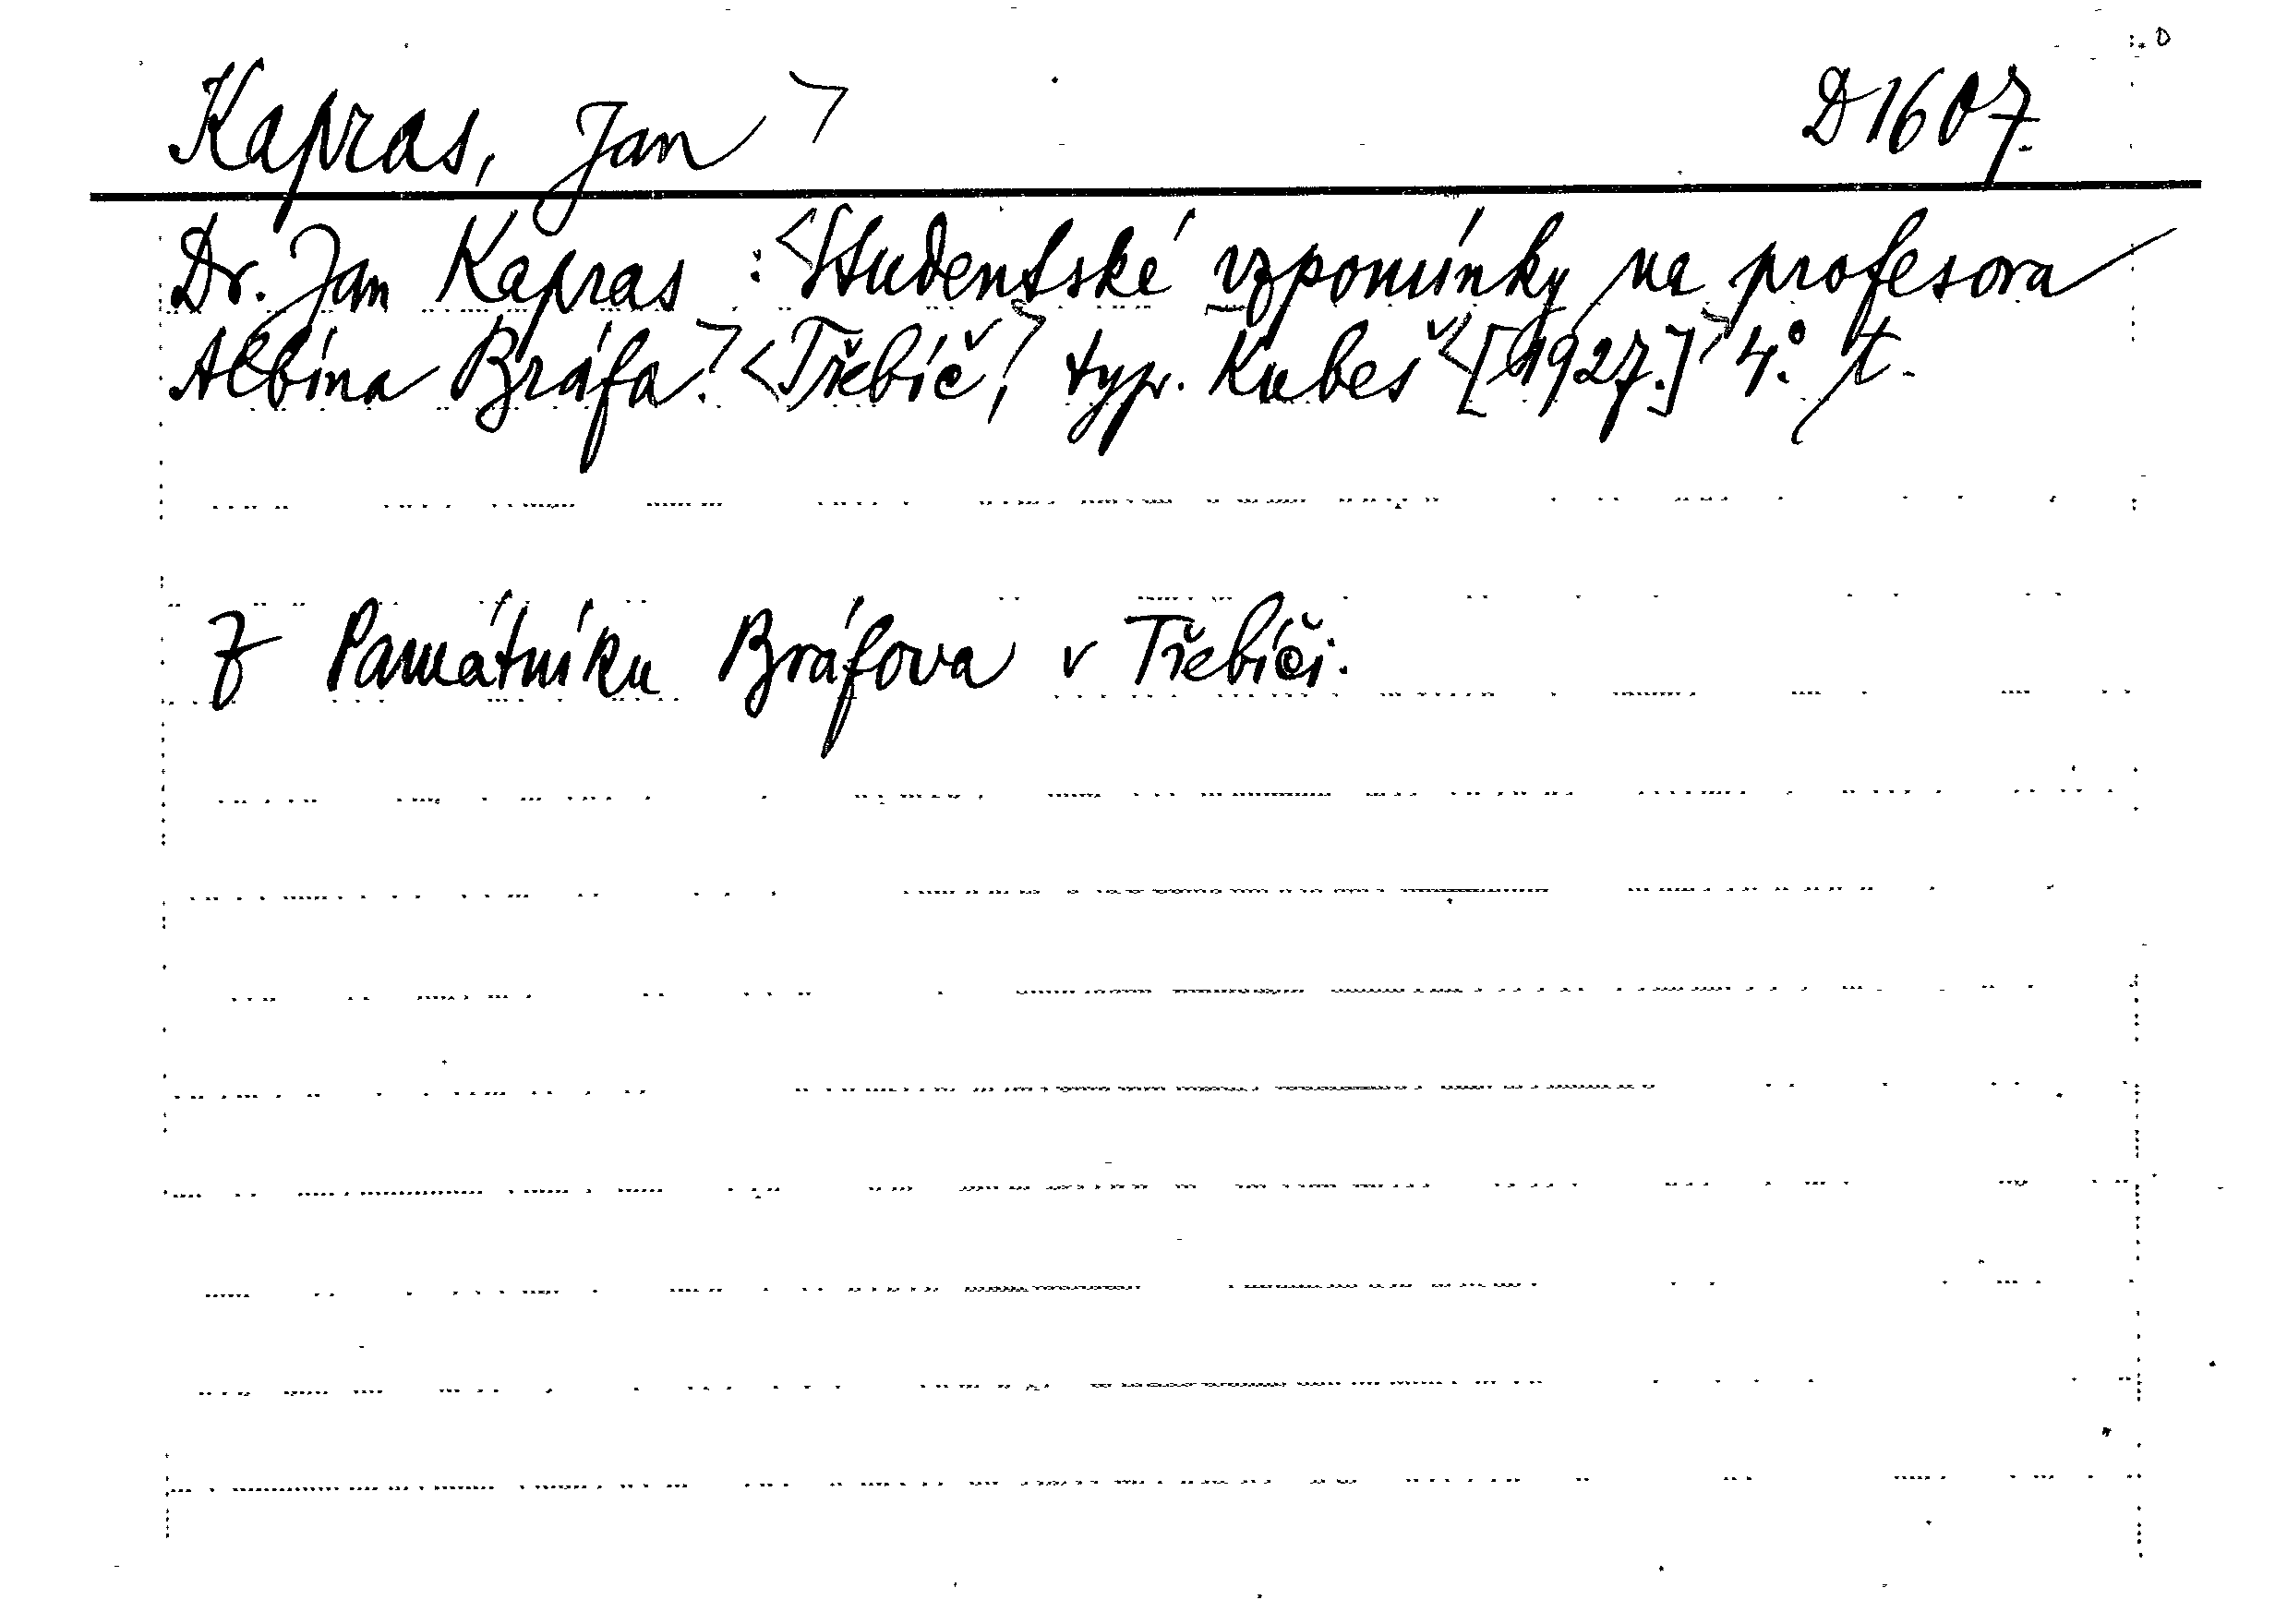 Kapras, Jan > D 1607.
Dr. Jan Kapras : <Studentské vzpomínky na profesora
Albína Bráfa.> <Třebíč,> typ. Kubeš <[1927.]> 4.° t.
Z Památníku Bráfova v Třebíči.